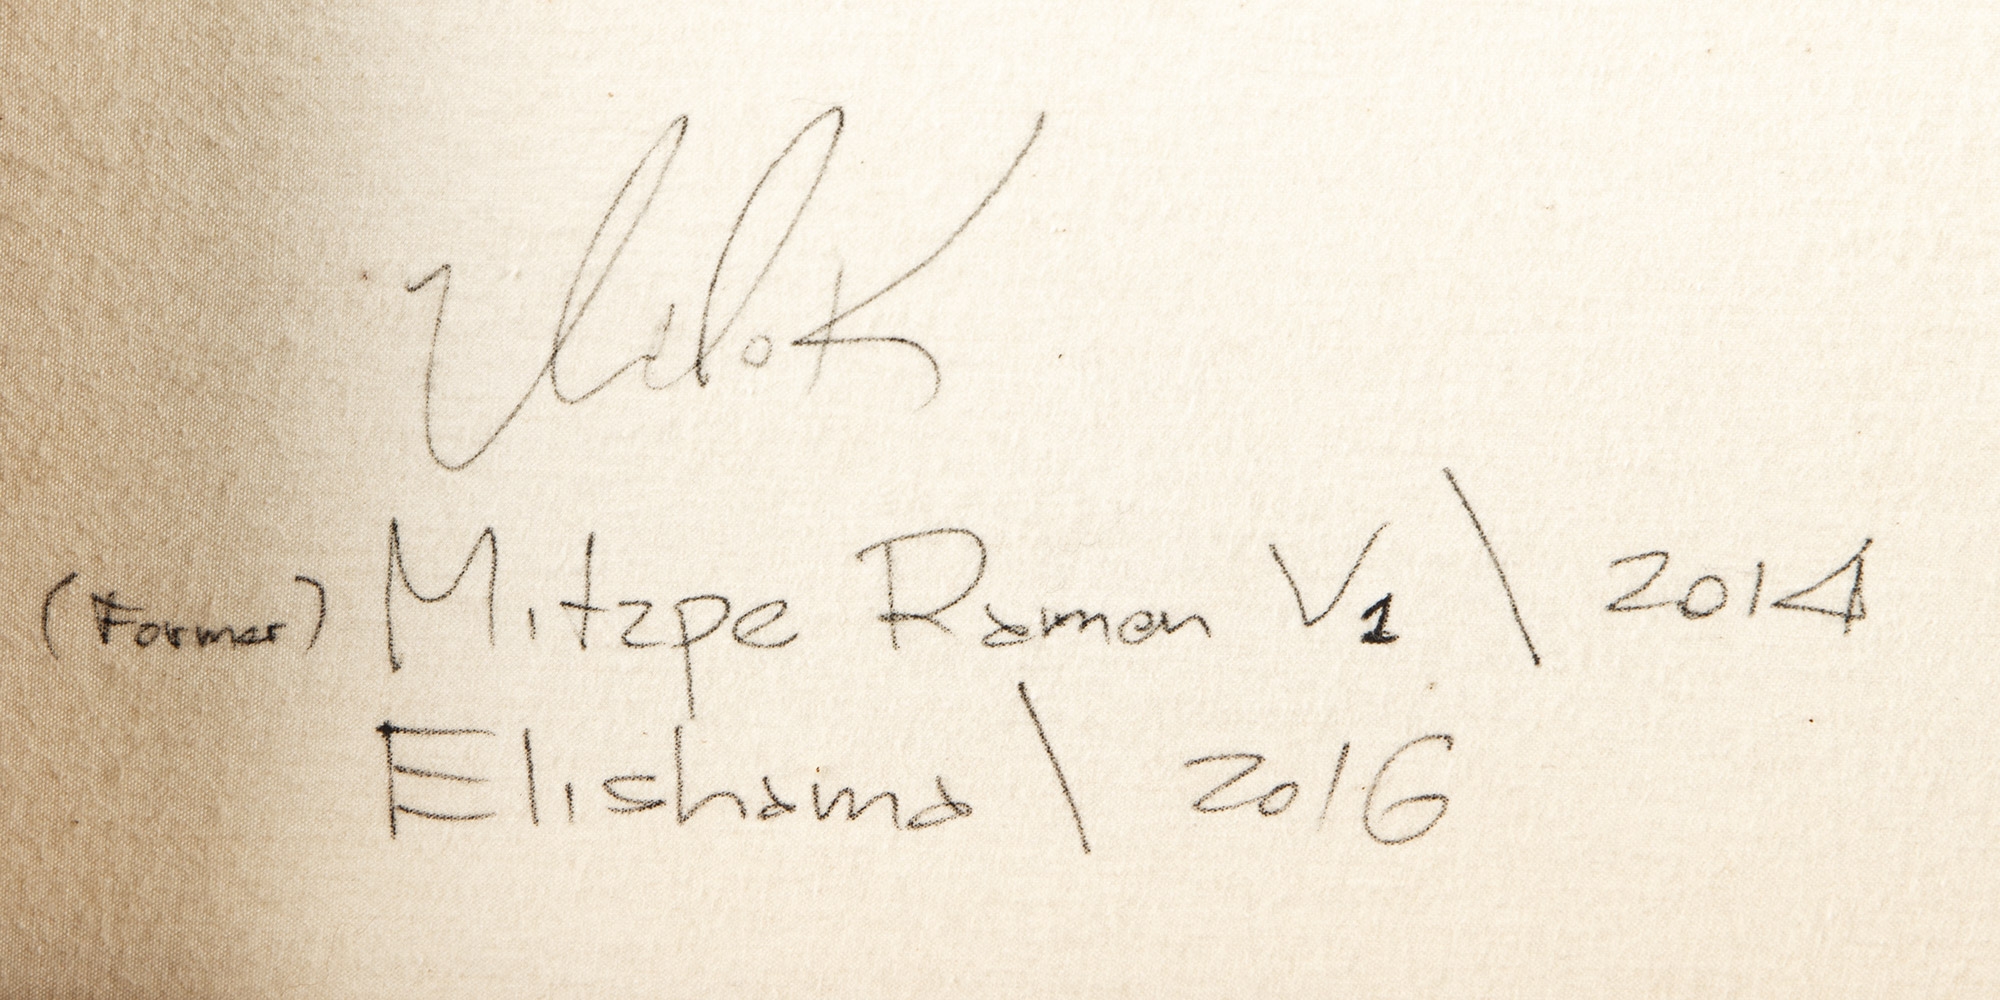 (Former) Mitzpe Ramon V1 \ 2014
Elishama \ 2016